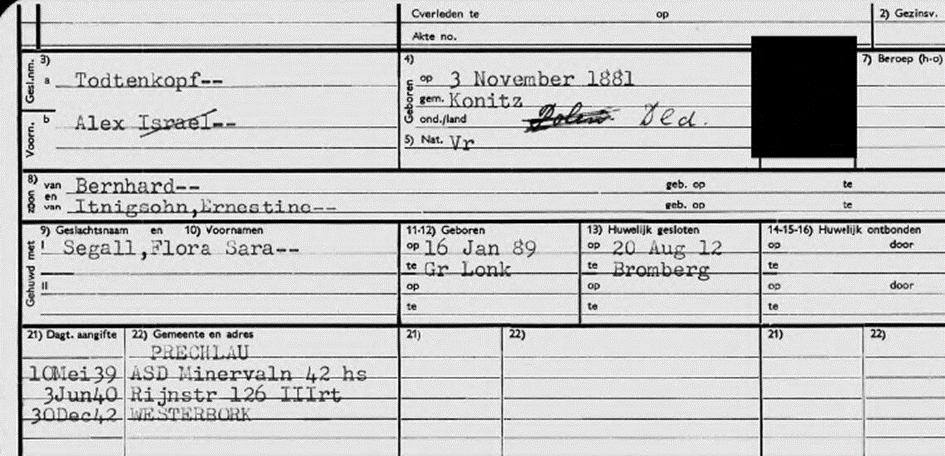 Overleden te op 2) Gezinsv.
Akte no.
Gesl.nm. 3) a Todtenkopf--
Voorn. b Alex Israel--
4) Geboren op 3 November 1881
gem. Konitz
ond./land Polen Dld.
5) Nat. Vr
7) Beroep (h-o)
8) zoon van Bernhard-- geb. op te
en van Itnigsohn,Ernestine-- geb. op te
9) Geslachtsnaam en 10) Voornamen 11-12) Geboren 13) Huwelijk gesloten 14-15-16) Huwelijk ontbonden
Gehuwd met I Segall,Flora Sara-- op 16 Jan 89 op 20 Aug 12 op door
te Gr Lonk te Bromberg te
II op op op door
te te te
21) Dagt. aangifte 22) Gemeente en adres 21) 22) 21) 22)
PRECHLAU
10Mei39 ASD Minervaln 42 hs
3Jun40 Rijnstr 126 IIIrt
30Dec42 WESTERBORK